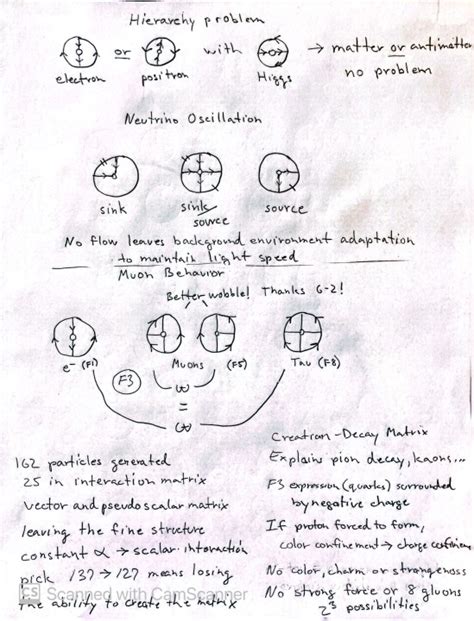 Hierarchy problem
or with → matter or antimatter
electron positron Higgs no problem
Neutrino Oscillation
sink sink/source source
No flow leaves background environment adaptation
to maintain light speed
Muon Behavior
Better wobble! Thanks G-2!
e⁻ (F1) Muons (F5) Tau (F8)
F3
ω
=
ω
162 particles generated
25 in interaction matrix
vector and pseudoscalar matrix
leaving the fine structure
constant α → scalar interaction
pick 137 → 127 means losing
the ability to create the matrix
Creation-Decay Matrix
Explains pion decay, kaons...
F3 expression (quarks) surrounded
by negative charge
If proton forced to form,
color confinement → charge confinement
No color, charm or strangeness
No strong force or 8 gluons
2³ possibilities
CS Scanned with CamScanner